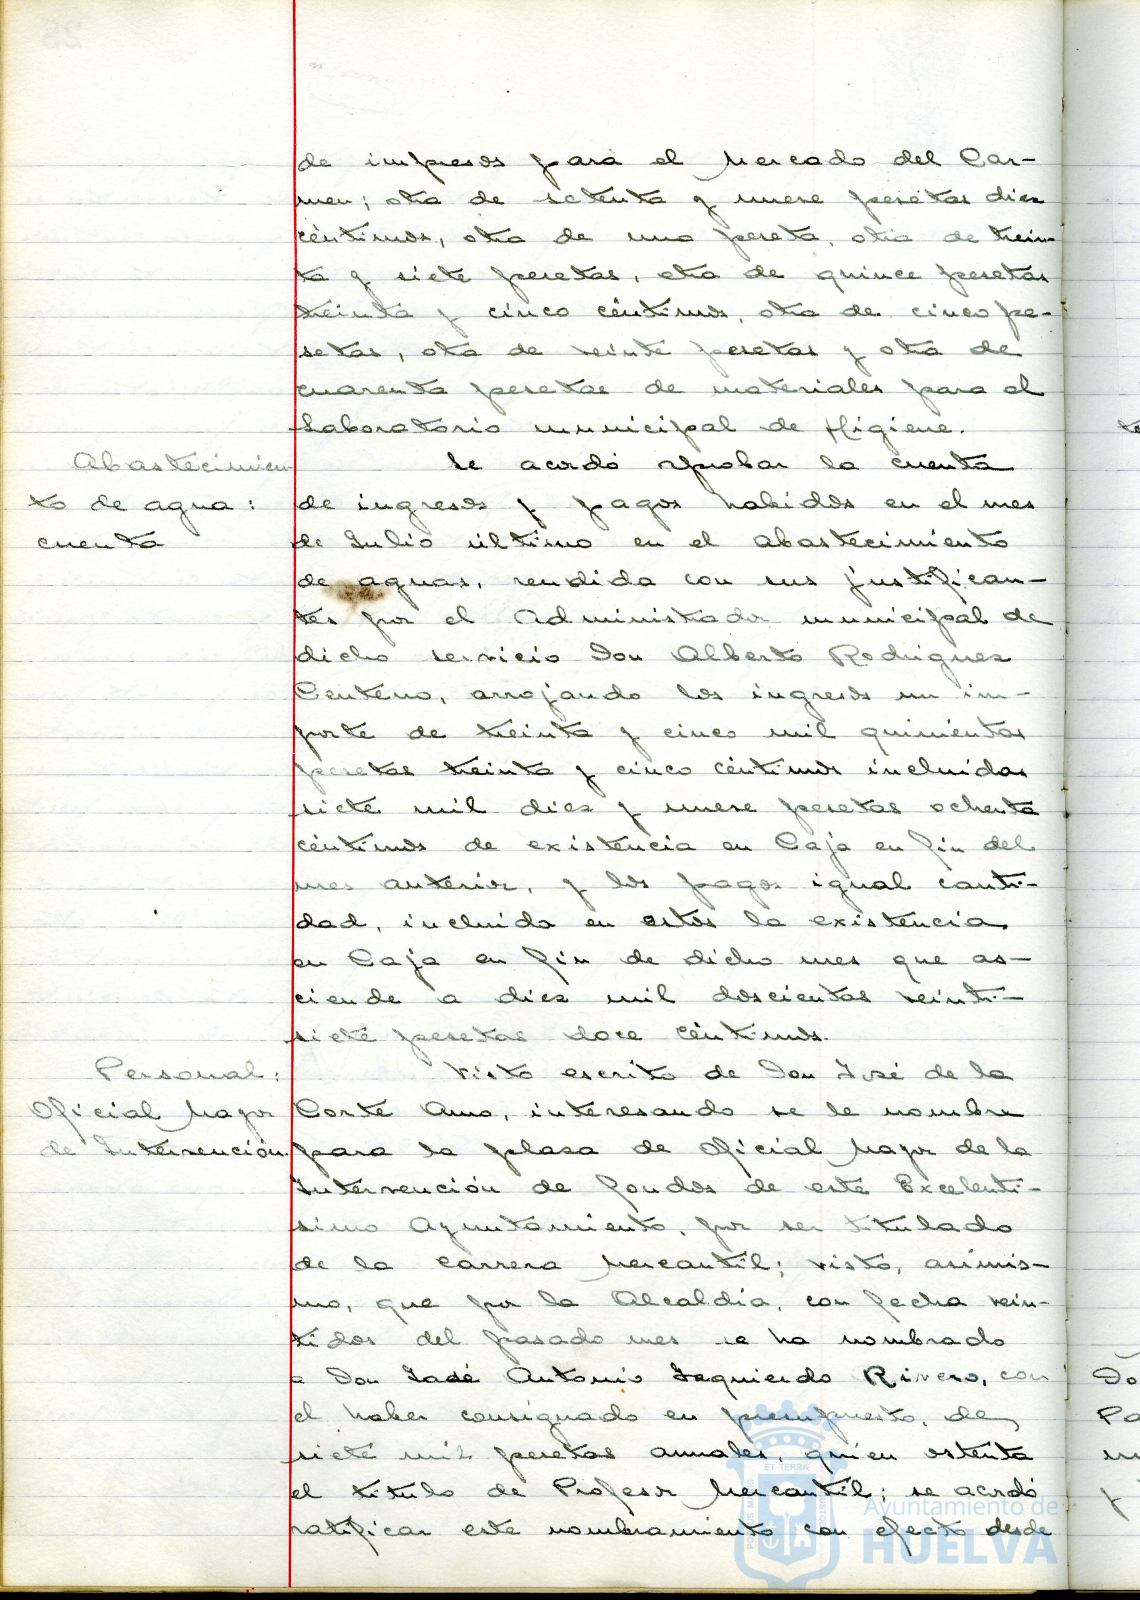 de impresos para el Mercado del Car-
men; otra de setenta y nueve pesetas diez
céntimos, otra de una peseta, otra de trein-
ta y siete pesetas, otra de quince pesetas
treinta y cinco céntimos, otra de cinco pe-
setas, otra de veinte pesetas y otra de
cuarenta pesetas de materiales para el
Laboratorio municipal de Higiene.
Abastecimien-
to de agua:
cuenta
Se acordó aprobar la cuenta
de ingresos y pagos habidos en el mes
de Julio último en el abastecimiento
de aguas, rendida con sus justifican-
tes por el Administrador municipal de
dicho servicio Don Alberto Rodriguez
Centeno, arrojando los ingresos un im-
porte de treinta y cinco mil quinientas
pesetas treinta y cinco céntimos incluidas
siete mil diez y nueve pesetas ochenta
céntimos de existencia en Caja en fin del
mes anterior, y los pagos igual canti-
dad, incluida en estos la existencia
en Caja en fin de dicho mes que as-
ciende a diez mil doscientas veinti-
siete pesetas doce céntimos.
Personal:
Oficial Mayor
de Intervención.
Visto escrito de Don José de la
Corte Amo, interesando se le nombre
para la plaza de Oficial Mayor de la
Intervención de fondos de este Excelentí-
simo Ayuntamiento, por ser titulado
de la carrera Mercantil; visto, asímis-
mo, que por la Alcaldía, con fecha vein-
tidos del pasado mes se ha nombrado
a Don José Antonio Izquierdo Rivero, con
el haber consignado en presupuesto, de
siete mil pesetas anuales, quien ostenta
el título de Profesor Mercantil; se acordó
ratificar este nombramiento con efecto desde
Ayuntamiento de
HUELVA